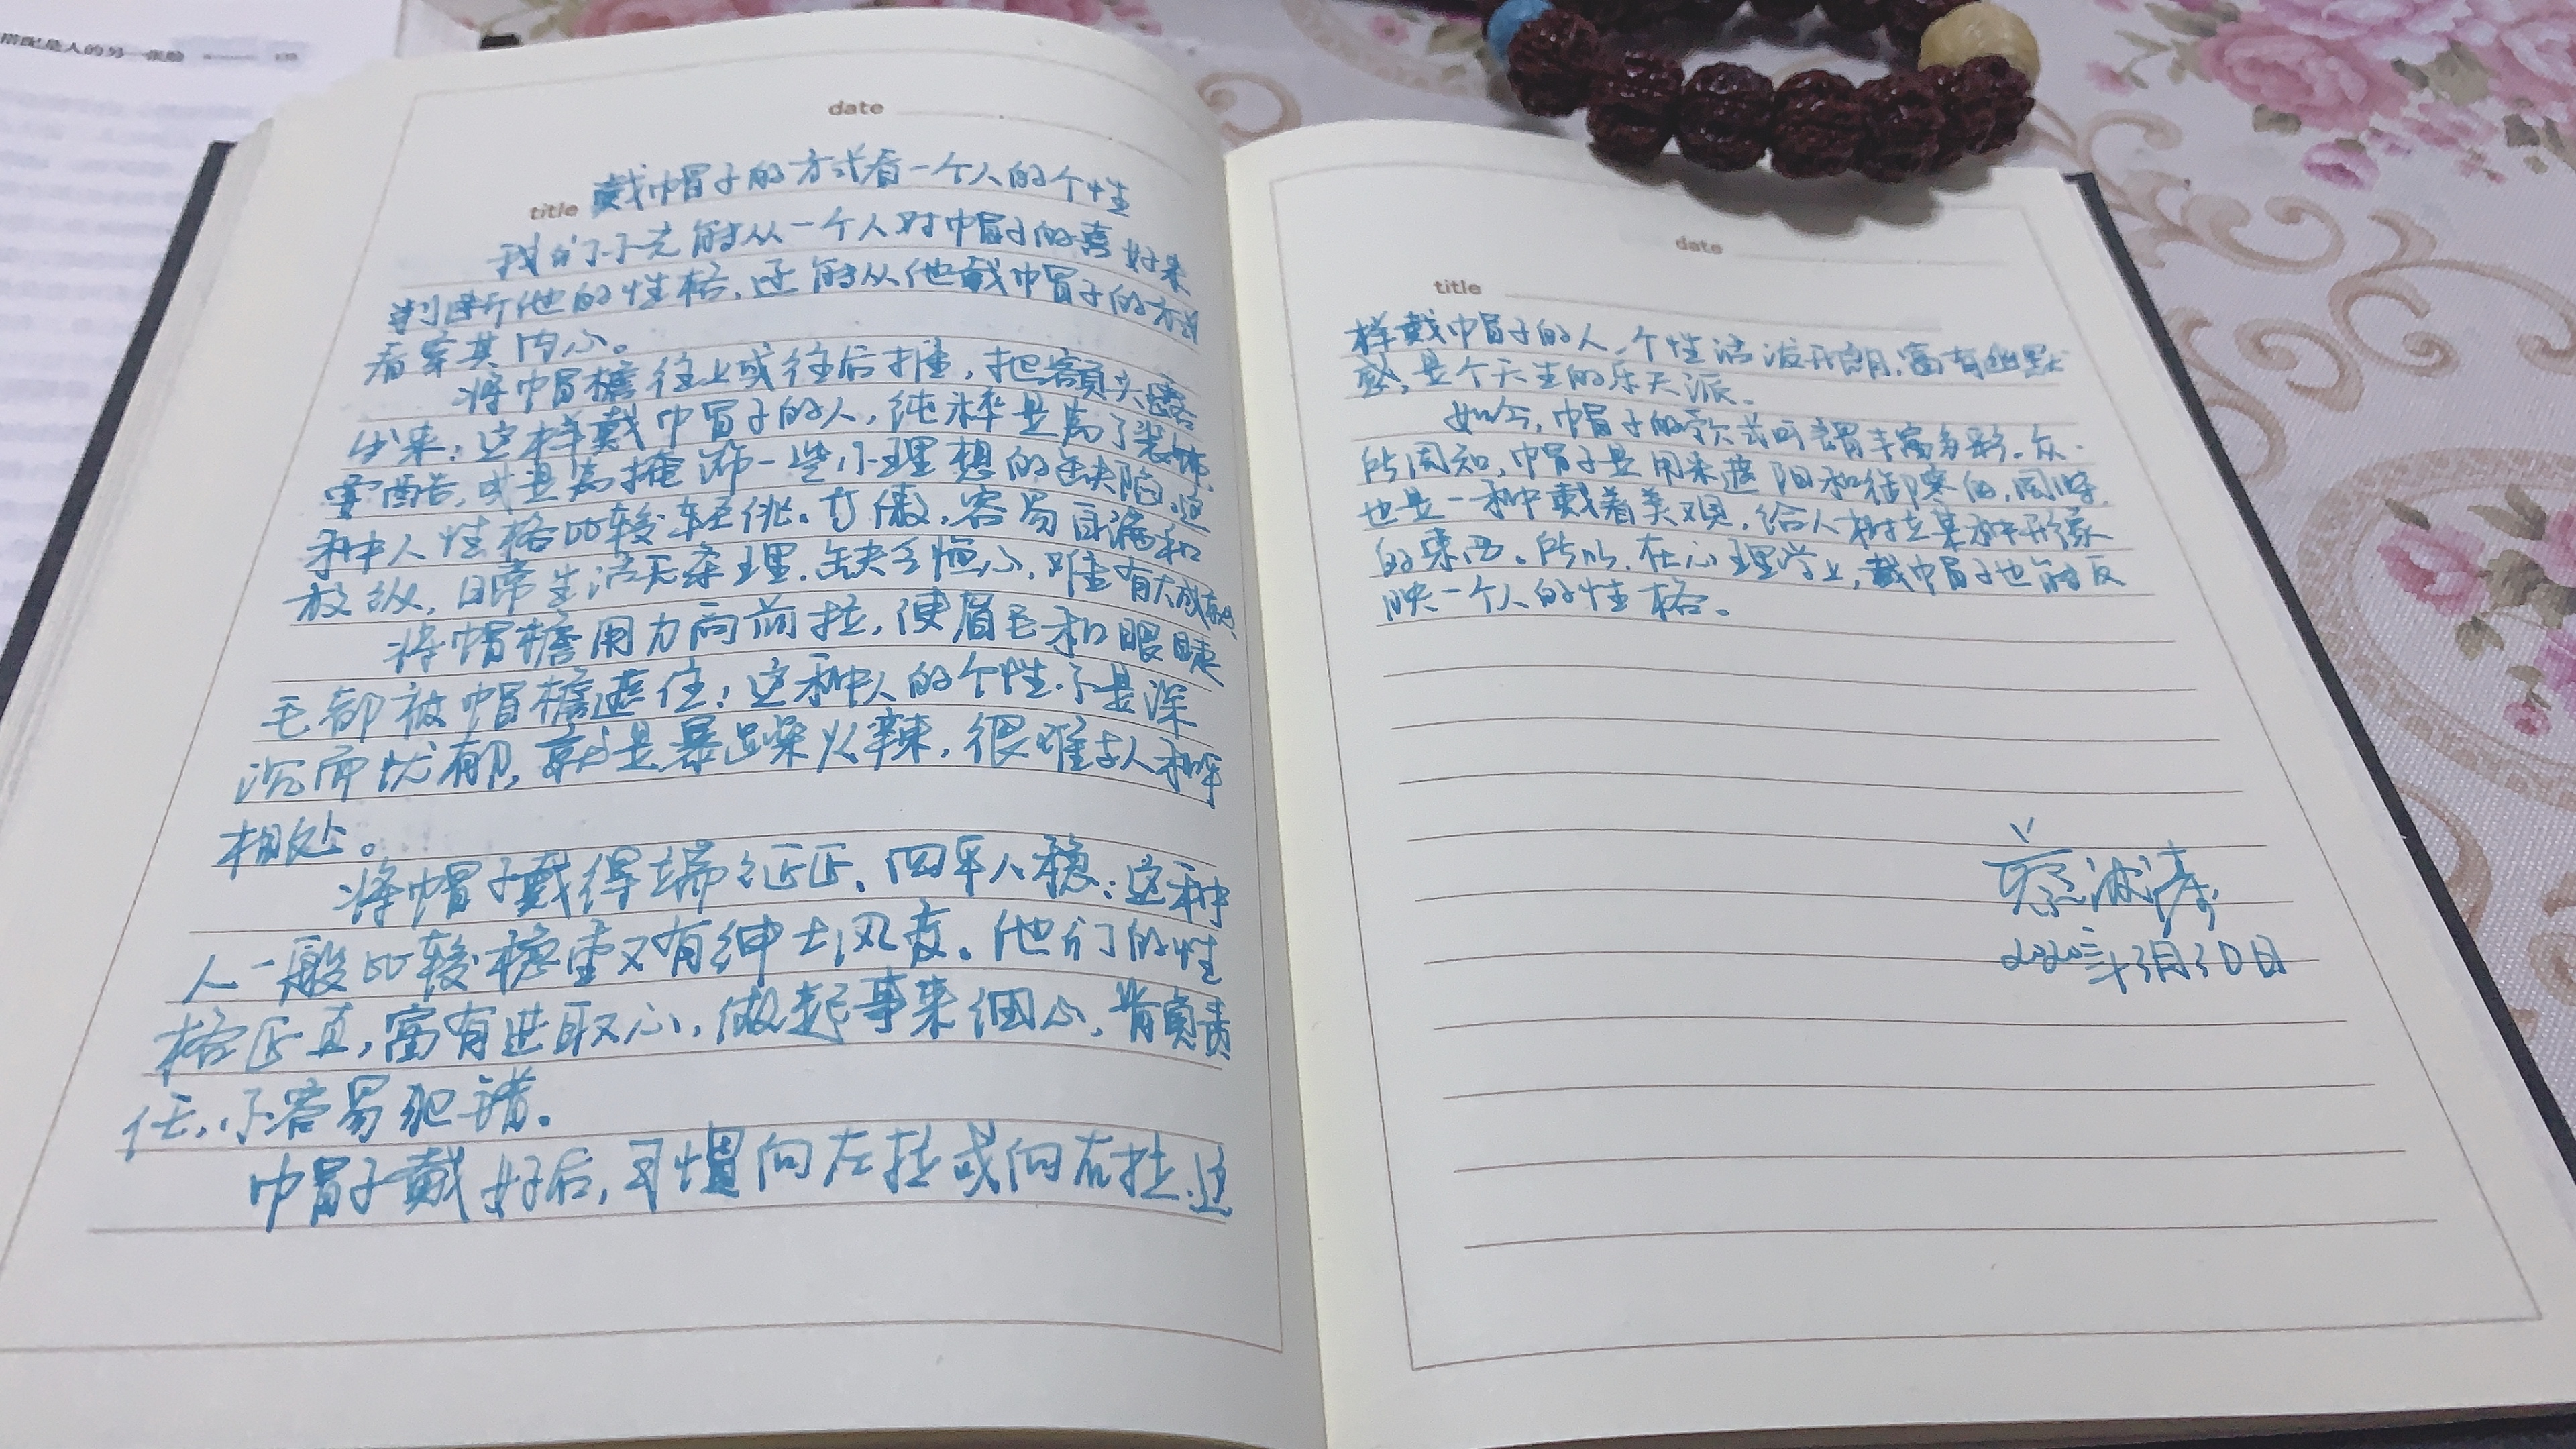 搭配是人的另一张脸
date
title 戴帽子的方式看一个人的个性
我们不光能从一个人对帽子的喜好来
判断他的性格,还能从他戴帽子的方式
看穿其内心。
将帽檐往上或往后推,把额头露
出来:这样戴帽子的人,纯粹是为了装饰,
耍酷,或是为掩饰一些不理想的缺陷,这
种人性格比较轻佻、高傲,容易自满和
放纵,日常生活无条理,缺乏恒心,难有大成就。
将帽檐用力向前拉,使眉毛和眼睫
毛都被帽檐遮住:这种人的个性不是深
沉而忧郁,就是暴躁火辣,很难与人和平
相处。
将帽子戴得端端正正、四平八稳:这种
人一般比较稳重又有绅士风度。他们的性
格正直,富有进取心,做起事来细心,肯负责
任,不容易犯错。
帽子戴好后,习惯向左拉或向右拉:这
date
title
样戴帽子的人,个性活泼开朗,富有幽默
感,是个天生的乐天派。
如今,帽子的款式可谓丰富多彩。众
所周知,帽子是用来遮阳和御寒的,同时
也是一种戴着美观,给人树立某种形象
的东西。所以,在心理学上,戴帽子也能反
映一个人的性格。